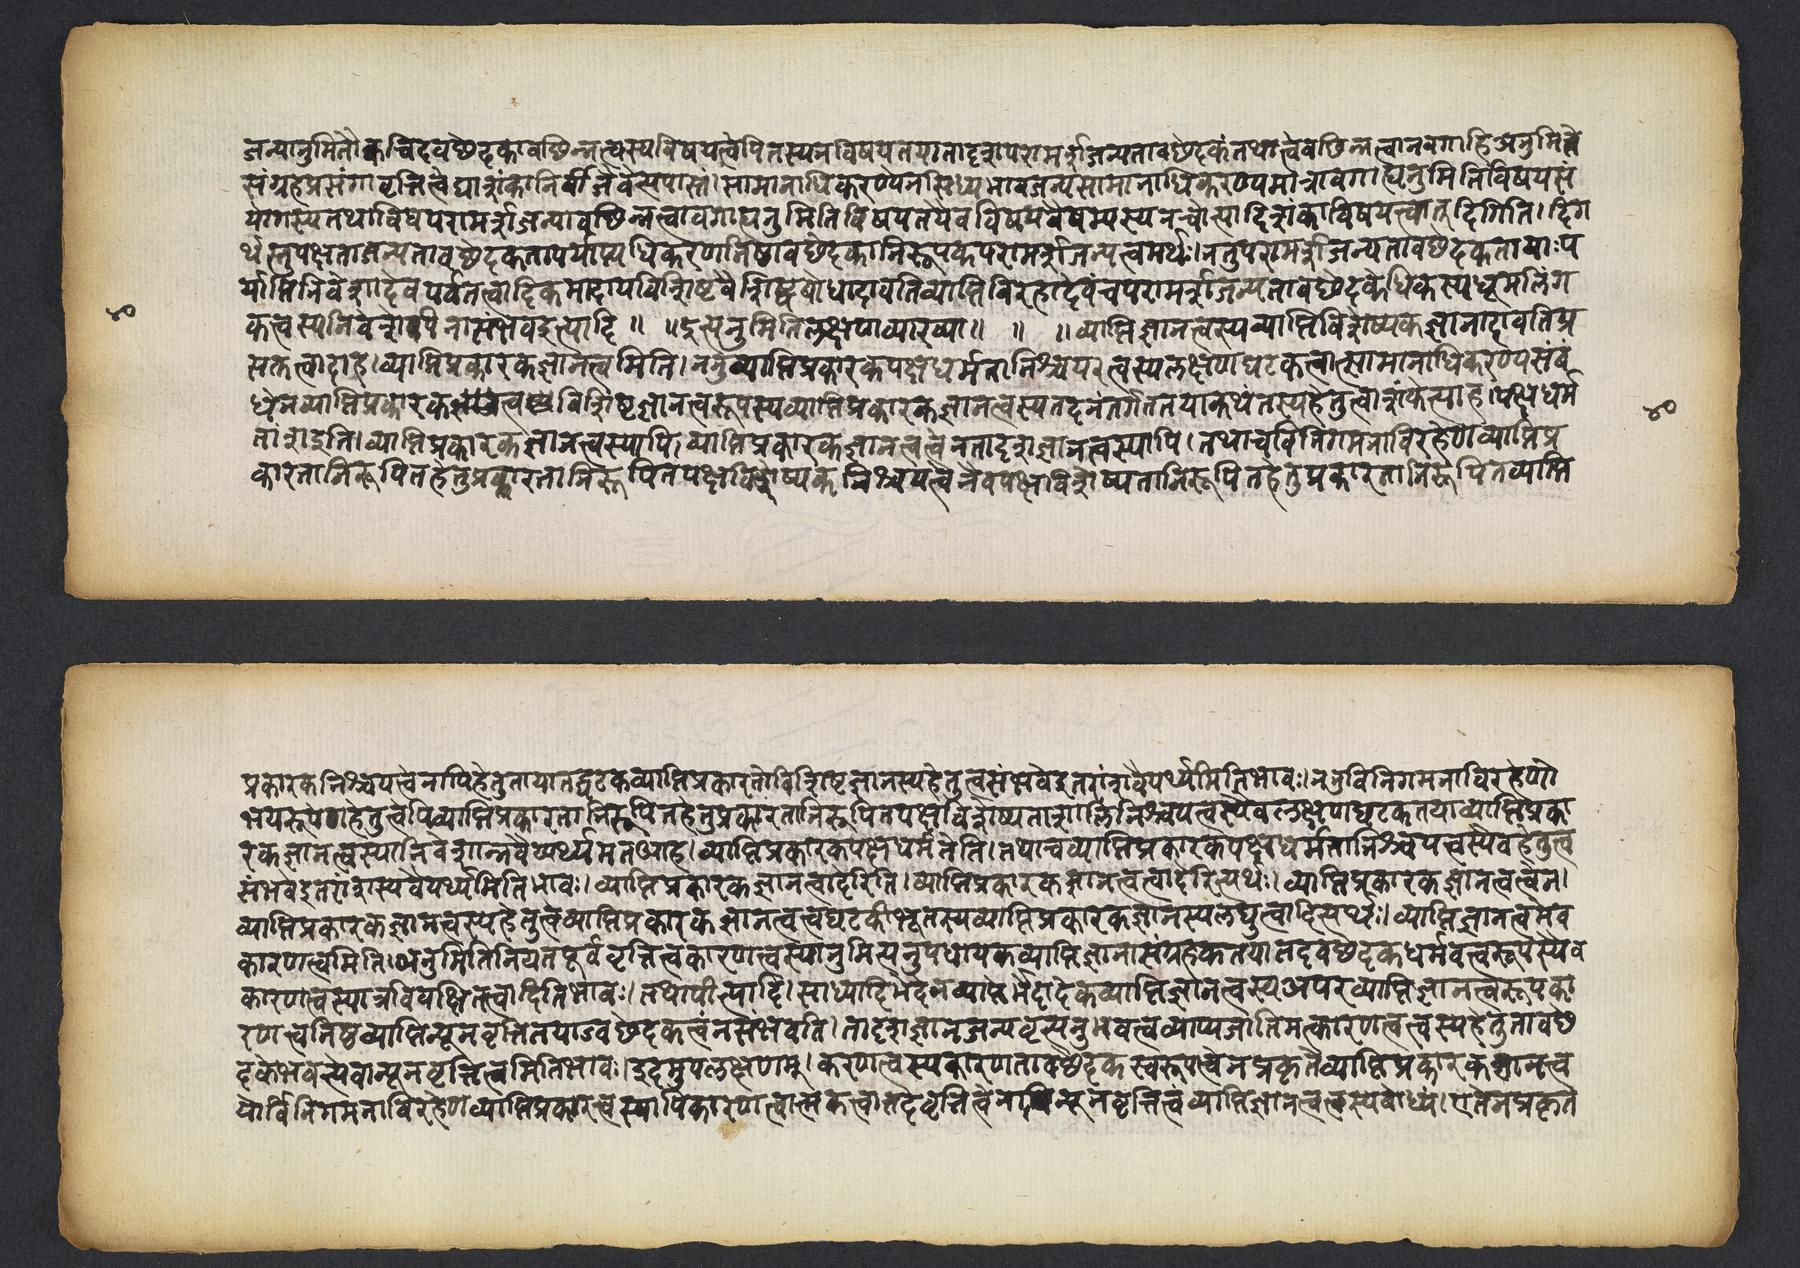 जन्यानुमितौ क्वचिदवछेदकावछिन्नत्वस्य विषयत्वेपि तस्य न विषयतया तादृशपरामर्शजन्यतावछेदकं तथात्वेवछिन्नत्वानवगाहि अनुमिते
संग्रहप्रसंगा वृत्तित्वं द्याशंकानिर्बीजेवेत्यपास्तं। सामानाधिकरण्येन सिध्यभावजन्यसामानाधिकरण्यमात्रावगाह्यनुमितिविषयसं
योगस्य तथाविधपरामर्शजन्यावछिन्नत्वावगाह्यनुमितिविषयतयैव विषयवैषम्यस्य दिशंकाविषयत्वात् दिगिति। दिग
र्थस्तु पक्षताजन्यतावछेदकतापर्याप्त्यधिकरणनिष्ठावछेदकतानिरूपकपरामर्शजन्यत्वमर्थः। न तु परामर्शजन्यतावछेदकतायाः प
र्याप्तिनिवेशादेव पर्वतत्वादिकमादाय विशिष्टवैशिष्ट्यबोधादावतिव्याप्तिविरहादेवं च परामर्शजन्यतावछेदकेधिकस्य धूमलिंग
कत्वस्य निवेशेपि नासंभव इत्यादि॥ ॥इत्यनुमितिलक्षणव्याख्या॥ ॥ ॥व्याप्तिज्ञानत्वस्य व्याप्तिविशेष्यकज्ञानादावतिप्र
सक्तत्वादाह। व्याप्तिप्रकारकज्ञानत्वमिति। ननु व्याप्तिप्रकारकपक्षधर्मतानिश्चयत्वस्य लक्षणघटकत्वात्सामानाधिकरण्यसंबं
धेन व्याप्तिप्रकारकत्वविशिष्टज्ञानत्वरूपस्य व्याप्तिप्रकारकज्ञानत्वस्य तदनंतर्गततया कथं तस्य हेतुत्वाशंकेत्याह। पक्षधर्म
तांश इति। व्याप्तिप्रकारकज्ञानत्वस्यापि। व्याप्तिप्रकारकज्ञानत्वत्वेन तादृशज्ञानत्वस्यापि। तथा च विनिगमनाविरहेण व्याप्तिप्र
कारतानिरूपितहेतुप्रकारतानिरूपितपक्षविशेष्यकनिश्चयत्वेनेव पक्षविशेष्यतानिरूपितहेतुप्रकारतानिरूपितव्याप्ति
४०
४०
प्रकारकनिश्चयत्वेनापि हेतुताया तद्घटकव्याप्तिप्रकारतोविशिष्टज्ञानस्य हेतुत्वसंभवे इतरांशवैयर्थ्यमिति भावः। ननु विनिगमनाविरहेणो
भयरूपेण हेतुत्वेपि व्याप्तिप्रकारतानिरूपितहेतुप्रकारतानिरूपितपक्षविशेष्यताशालिनिश्चयत्वस्यैव लक्षणघटकतया व्याप्तिप्रका
रकज्ञानत्वस्यानिवेशान्न वैयर्थ्यमत आह। व्याप्तिप्रकारकपक्षधर्मतेति। तथा च व्याप्तिप्रकारकपक्षधर्मतानिश्चयत्वस्यैव हेतुत्व
संभवे इतरांशस्य वैयर्थ्यमिति भावः। व्याप्तिप्रकारकज्ञानत्वादेरिति। व्याप्तिप्रकारकज्ञानत्वत्वादेरित्यर्थः। व्याप्तिप्रकारकज्ञानत्वत्वेन।
व्याप्तिप्रकारकज्ञानत्वस्य हेतुत्वे व्याप्तिप्रकारकज्ञानत्वत्वघटकीभूतस्य व्याप्तिप्रकारकज्ञानस्य लघुत्वादित्यर्थः। व्याप्तिज्ञानत्वमेव
कारणत्वमिति। अनुमितिनियतपूर्ववृत्तित्वकारणत्वस्यानुमित्यनुपधायकव्याप्तिज्ञानासंग्राहकतया तदवछेदकधर्मवत्वरूपस्यैव
कारणत्वस्यात्र विवक्षितत्वादिति भावः। तथापीत्यादि। साध्यादिभेदेन व्याप्तेर्भेदादेकव्याप्तिज्ञानत्वस्य अपरव्याप्तिज्ञानत्वरूपका
रणत्वनिष्ठव्याप्तिन्यूनवृत्तितयाऽवछेदकत्वं न संभवति। तादृशज्ञानजन्यवृत्त्यनुभवत्वव्याप्यजातिमत्कारणत्वत्वस्य हेतुतावछे
दकेभवत्येवान्यूनवृत्तित्वमिति भावः। इदमुपलक्षणम्। करणत्वस्य कारणतावछेदकस्वरूपत्वेन प्रकृते व्याप्तिप्रकारकज्ञानत्व
योर्विनिगमनाविरहेण व्याप्तिप्रकारत्वस्यापि कारणत्वात्मकत्वात्तदवृत्तित्वेनापि न्यूनवृत्तित्वं व्याप्तिज्ञानत्वत्वस्य बोध्यं। एतेन प्रकृत